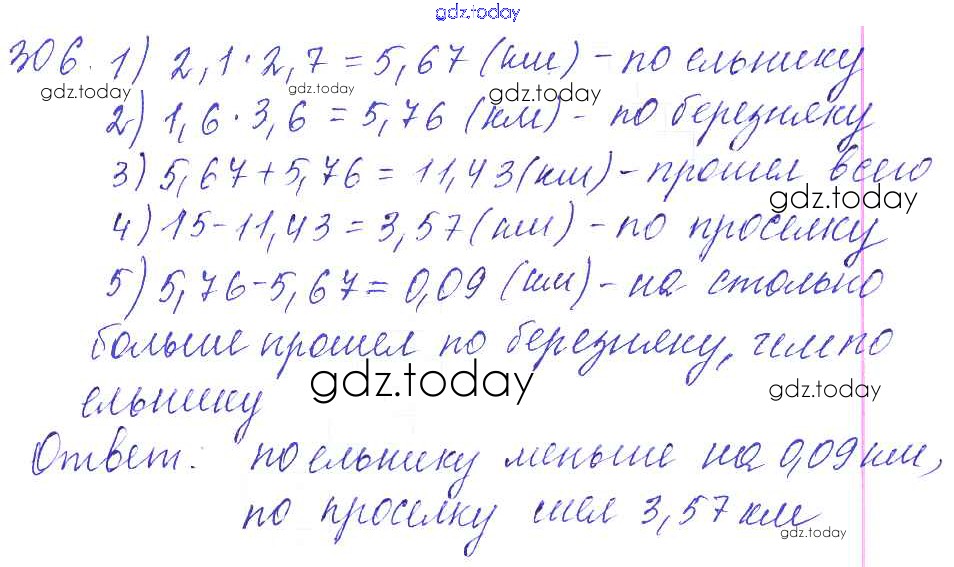 gdz.today
306. 1) 2,1·2,7=5,67 (км) - по ельнику
gdz.today gdz.today gdz.today
2) 1,6·3,6=5,76 (км) - по березняку
3) 5,67+5,76=11,43 (км) - прошел всего
gdz.today
4) 15-11,43=3,57 (км) - по проселку
5) 5,76-5,67=0,09 (км) - на столько
больше прошел по березняку, чем по
gdz.today gdz.today
ельнику
Ответ: по ельнику меньше на 0,09 км,
по проселку шел 3,57 км
gdz.today